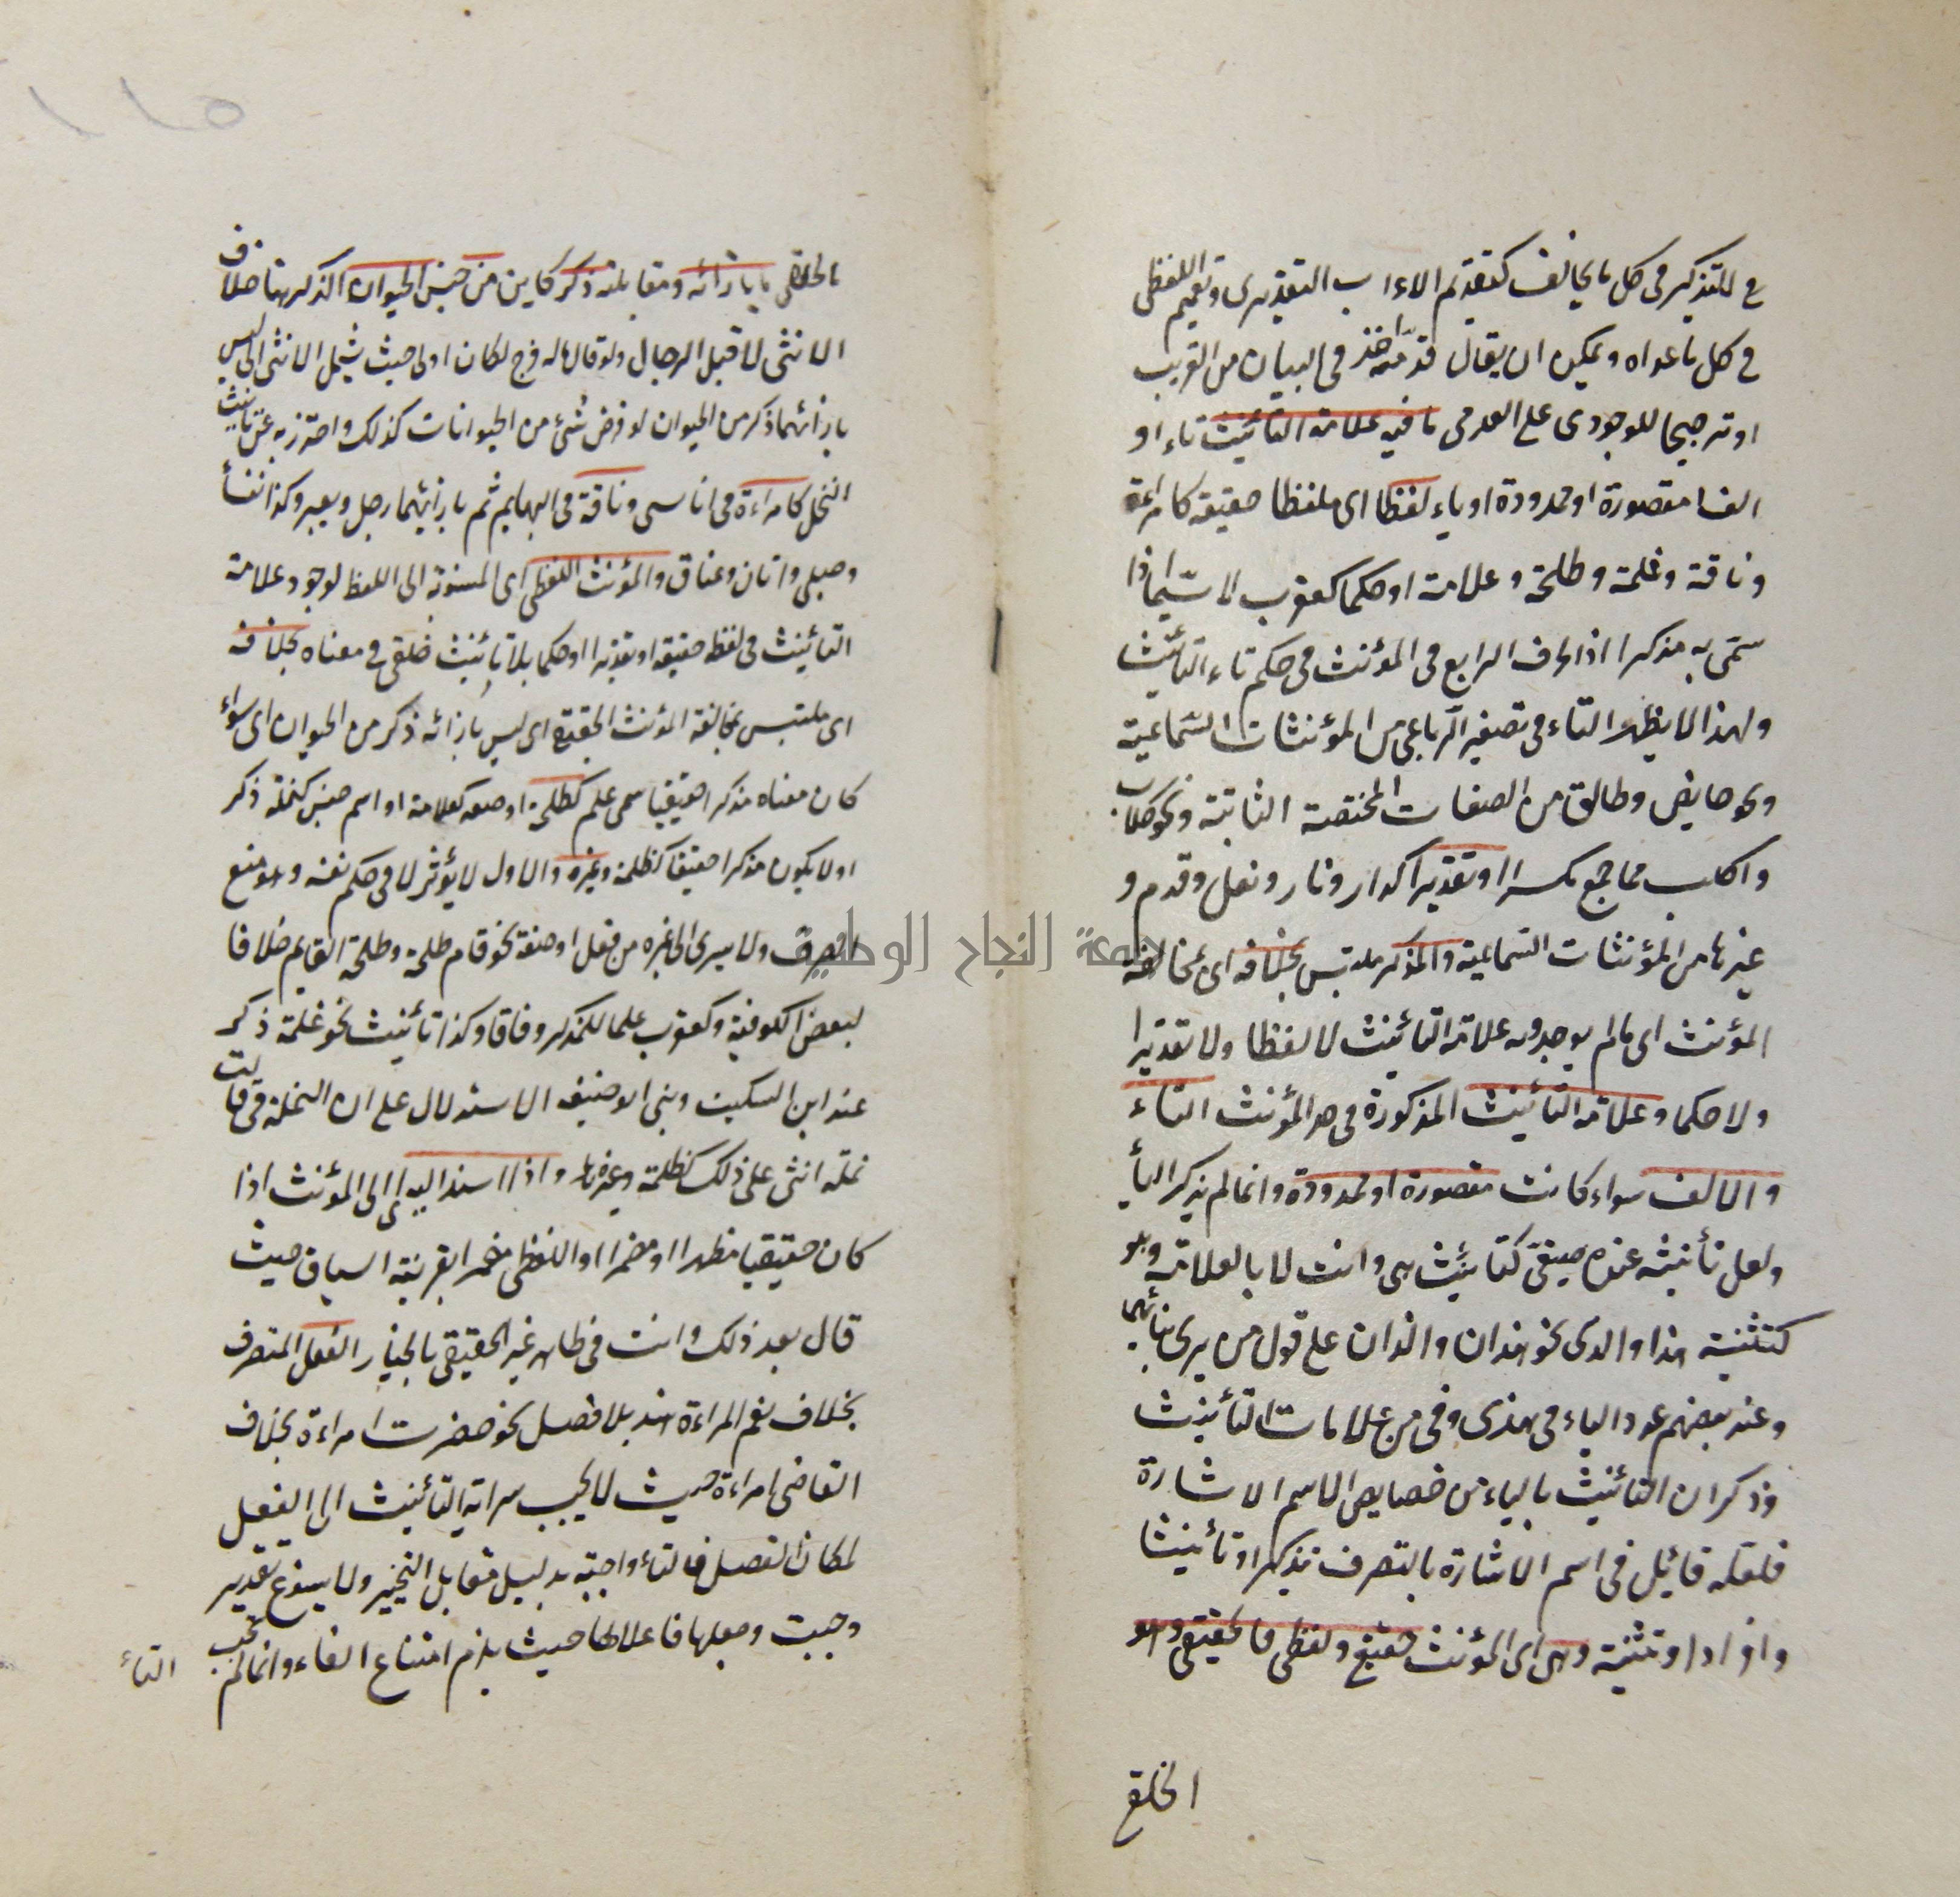 في للتذكير في كل ما يخالف كتقديم الاعراب التقديري وتعميم اللفظي
في كل ما عداه ويمكن ان يقال قدمه اخذ في البيان من القريب
او ترجيحا للوجودي على العدمي ما فيه علامة التأنيث تاء او
الفا مقصورة او ممدودة او ياء لفظا اى ملفظا حقيقة كامراءة
وناقة وغلمة وطلحة وعلامة او حكما كعقرب لا سيما اذا
سمى به مذكرا اذ الحرف الرابع في المؤنث في حكم تاء التأنيث
ولهذا لا يظهر التاء في تصغير الرباعي من المؤنثات السماعية
ونحو حايض وطالق من الصفات المختصة الثابتة ونحو كلاب
واكلب مما جمع مكسرا او تقديرا كدار ونار ونعل وقدم و
غيرها من المؤنثات السماعية والمذكر ملتبس بخلافه اى مخالفة
المؤنث اى ما لم يوجد فيه علامة التأنيث لا لفظا ولا تقديرا
ولا حكما وعلامة التأنيث المذكورة في حد المؤنث التاء
والالف سواء كانت مقصورة او ممدودة وانما لم يذكر اليأ
ولعل تأنيثه عنده صيغي كتأنيث هى وانت لا بالعلامة وهو
كتثنية هذا والذى نحو هذان والذان على قول من يرى بنائهما
وعند بعضهم عود الياء في هذى وفي من علامات التأنيث
وذكر ان التأنيث بالياء من خصايص الاسم الاشارة
فلعله قائل في اسم الاشارة بالتصرف تذكيرا وتأنيثا
وافرادا وتثنية وهى اى المؤنث حقيقي ولفظي فالحقيقي وهو
الخلقي
الخلقي ما بازائه ومقابلته ذكر كاين من جنس الحيوان الذكر ههنا خلاف
الانثى لا قبل الرجال ولو قال ماله فرج لكان اولى حيث يشمل الانثى التي ليس
بازائها ذكر من الحيوان لو فرض شئ من الحيوانات كذلك واحترز به عن تأنيث
النخل كامراءة في اناسي وناقة في البهايم ثم بازائهما رجل وبعير وكذا نفسأ
وحبلى واتان وعناق والمؤنث اللفظي اى المنسوبة الى اللفظ لوجود علامة
التأنيث في لفظه حقيقة او تقديرا او حكما بلا تأنيث خلقي في معناه بخلافه
اى ملتبس بمخالفة المؤنث الحقيقي اى ليس بازائه ذكر من الحيوان اى سواء
كان معناه مذكرا حقيقيا سمى علم كطلحة او صفة كعلامة او اسم جنس كنملة ذكر
او لا يكون مذكرا حقيقا كظلمة وغيره والاول لا يؤثر لا في حكم نفسه وهو منع
الصرف ولا يسرى الى غيره من فعل او صفة نحو قام طلحة وطلحة القايم خلافا
لبعض الكوفية وكعقرب علما للمذكر وفاقا وكذا تأنيث نحو غلمة ذكر
عند ابن السكيت وبنى ابو حنيفه الاستدلال على ان النملة في قالت
نملة انثى على ذلك كظلمة وغيرها واذا اسند اليه اى الى المؤنث اذا
كان حقيقيا مظهرا او مضمرا او اللفظي مضمرا بقرينة السياق حيث
قال بعد ذلك وانت في ظاهر غير الحقيقي بالخيار الفعل المتصرف
بخلاف نعم المراءة هند بلا فصل نحو حضرت امراءة بخلاف
القاضي امراءة حيث لا يجب سراية التأنيث الى الفعل
لمكان الفصل فالتاء واجبة بدليل مقابل التخيير ولا يسوغ تقدير
وجبت وجعلها فاعلا لها حيث يلزم امتناع الفاء وانما لم تجب
التأ
جامعة النجاح الوطنية
١١٥